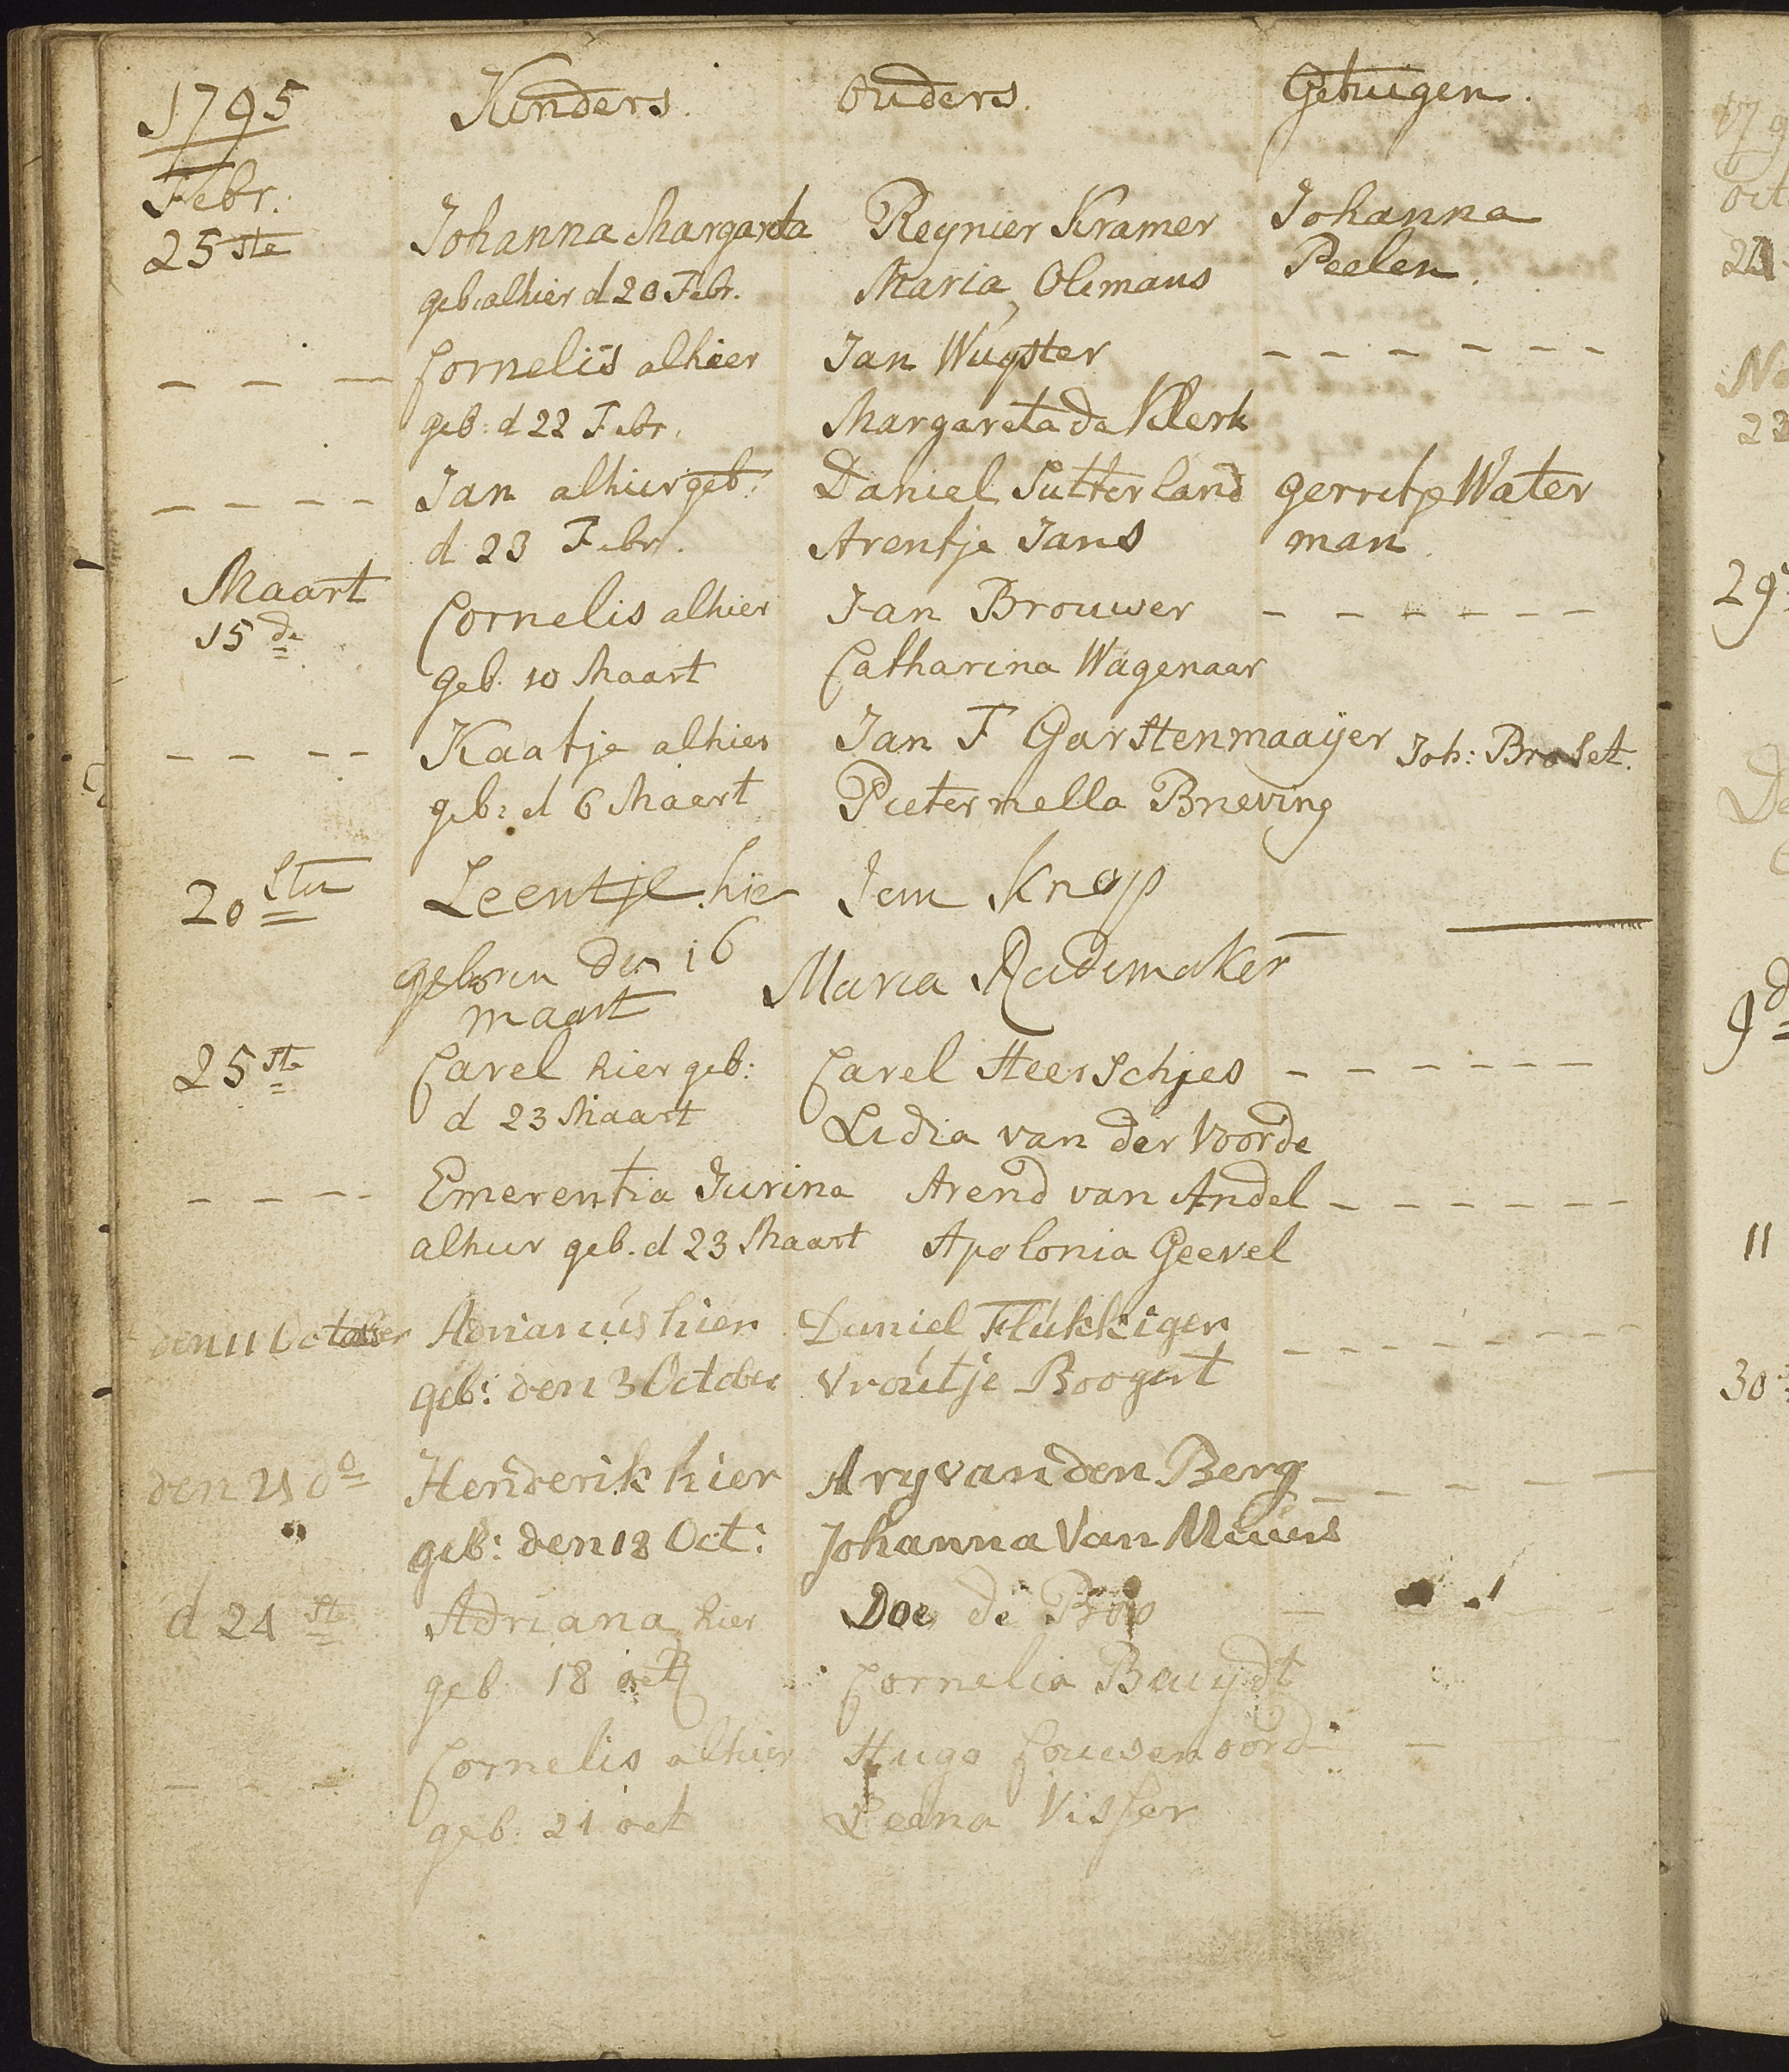 1795 Kinders. Ouders. Getuigen.
Febr.
25ste Johanna Margareta Reynier Kramer Johanna
geb: alhier d 20 Febr. Maria Olemans Peelen.
_ _ _ Cornelis alhier Jan Wugster _ _ _ _ _ _
geb: d 22 Febr. Margareta de Klerk
_ _ _ _ Jan alhier geb: Daniel Sutterland gerritje Water
d 23 Febr. Arentje Jans man.
Maart
15de Cornelis alhier Jan Brouwer _ _ _ _ _ _
geb. 10 Maart Catharina Wagenaar
_ _ _ _ Kaatje alhier Jan F Garstenmaaijer Joh: Braset.
geb: d 6 Maart Pieternella Breving
20sten Leentje hier Jem Knop
geboren den 16 Maria Rademaker
maart
25ste Carel hier geb: Carel Heerschjes _ _ _ _ _ _
d 23 Maart Lidia van der Voorde
_ _ _ _ Emerentia Jurina Arend van Andel _ _ _ _ _ _
alhier geb. d 23 Maart Apolonia Geevel
den 11 October Adrianus hier Daniel Flukkiger _ _ _ _ _ _
geb: den 3 October Vroutje Boogert
den 21 do Henderik hier Ary van den Berg _ _ _ _
geb: den 18 Oct: Johanna Van
d 24ste Adriana hier Doe de
geb. 18 oct Cornelia Buydt
_ _ _ Cornelis alhier Hugo Couwenoord
geb. 21 oct Leena Visser
17 9
oct
No
23
29
De
9d
11
30